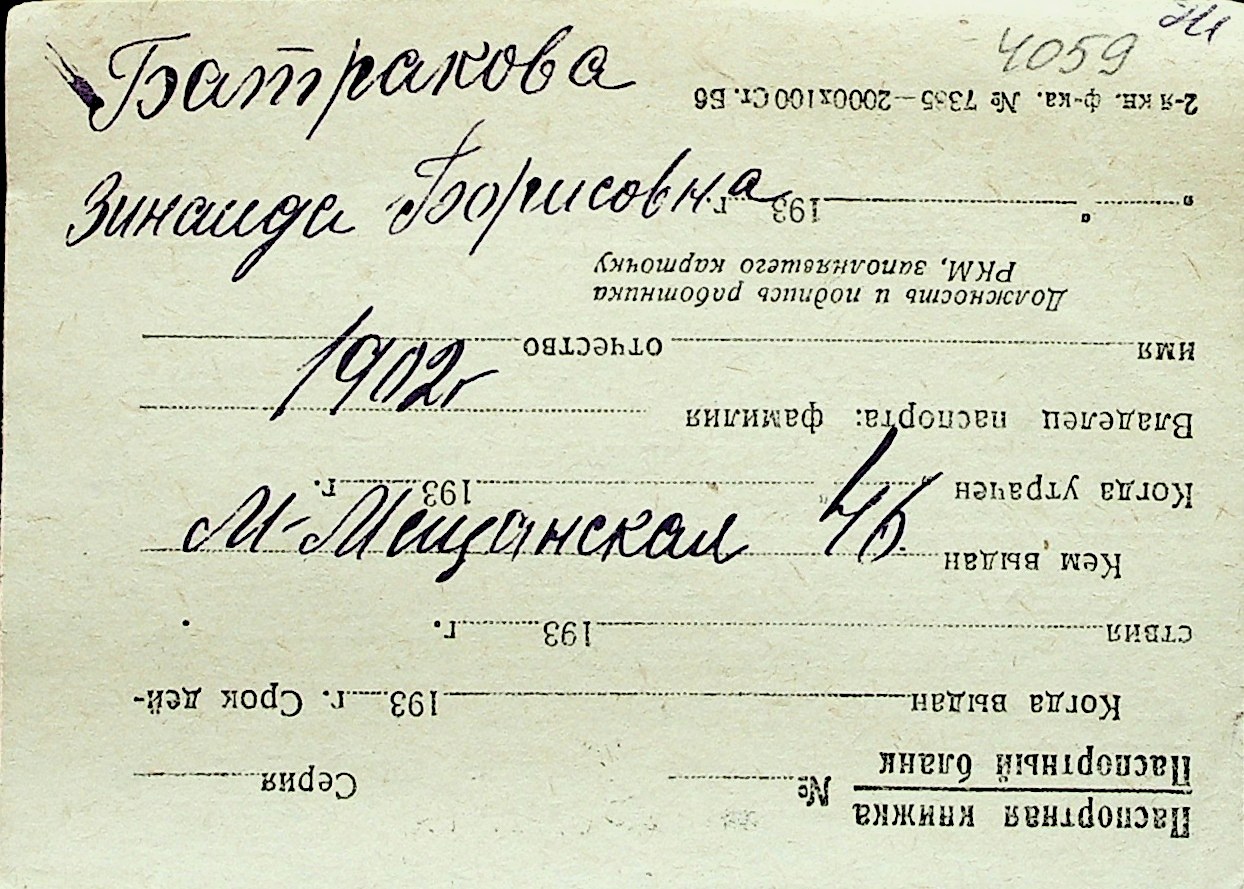 4059
Батракова
Зинаида Борисовна
1902 г
М-Мещанская
Паспортная книжка
Паспортный бланк
№ Серия
Когда выдан 193 г. Срок дей-
ствия 193 г.
Кем выдан
Когда утрачен " " 193 г.
Владелец паспорта: фамилия
имя отчество
Должность и подпись работника
РКМ, заполнявшего карточку
" " 193 г.
2-я кн. ф-ка. № 7385—2000х100 Ст. Б6